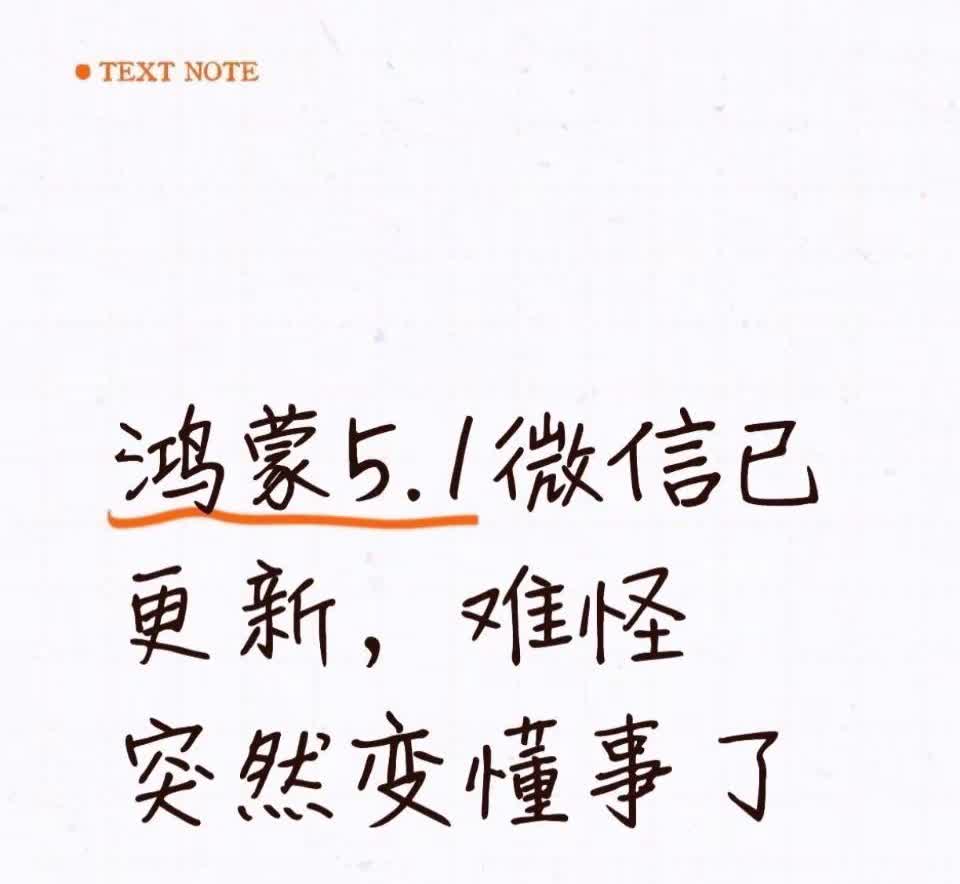 TEXT NOTE
鸿蒙5.1微信已
更新，难怪
突然变懂事了